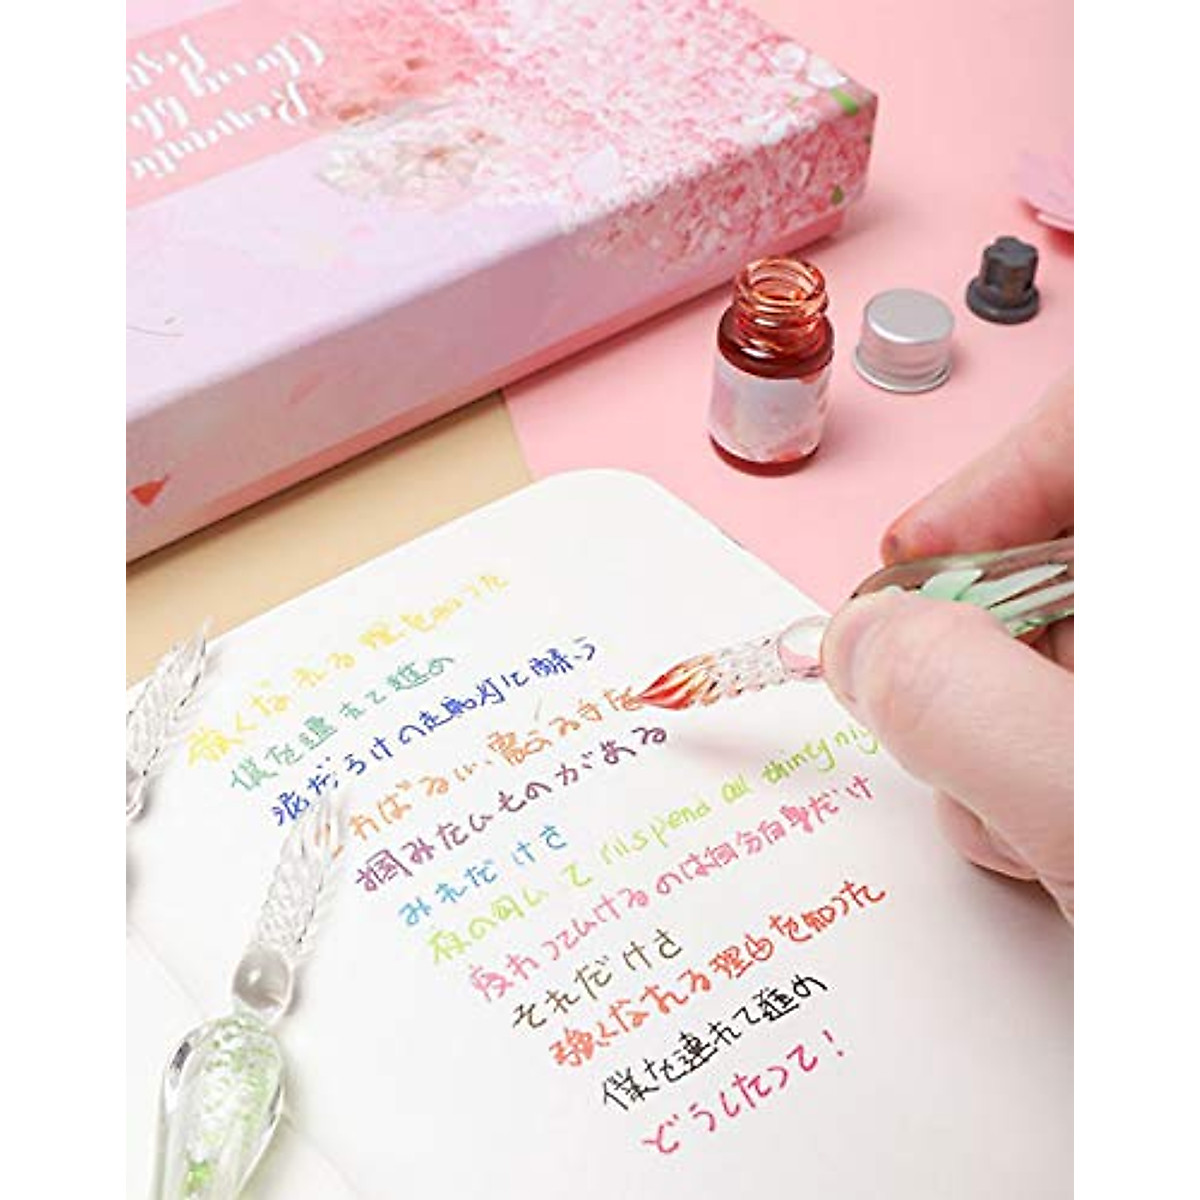 Beautiful
Cherry Blo
強くなれる理由を知った
僕を連れて進め
泥だらけの走馬灯に酔う
こわばる心、震える手は
掴みたいものがある
それだけさ
夜の匂いで I'll spend all thirty nig
変わっていけるのは自分自身だけ
それだけさ
強くなれる理由を知った
僕を連れて進め
どうしたって！